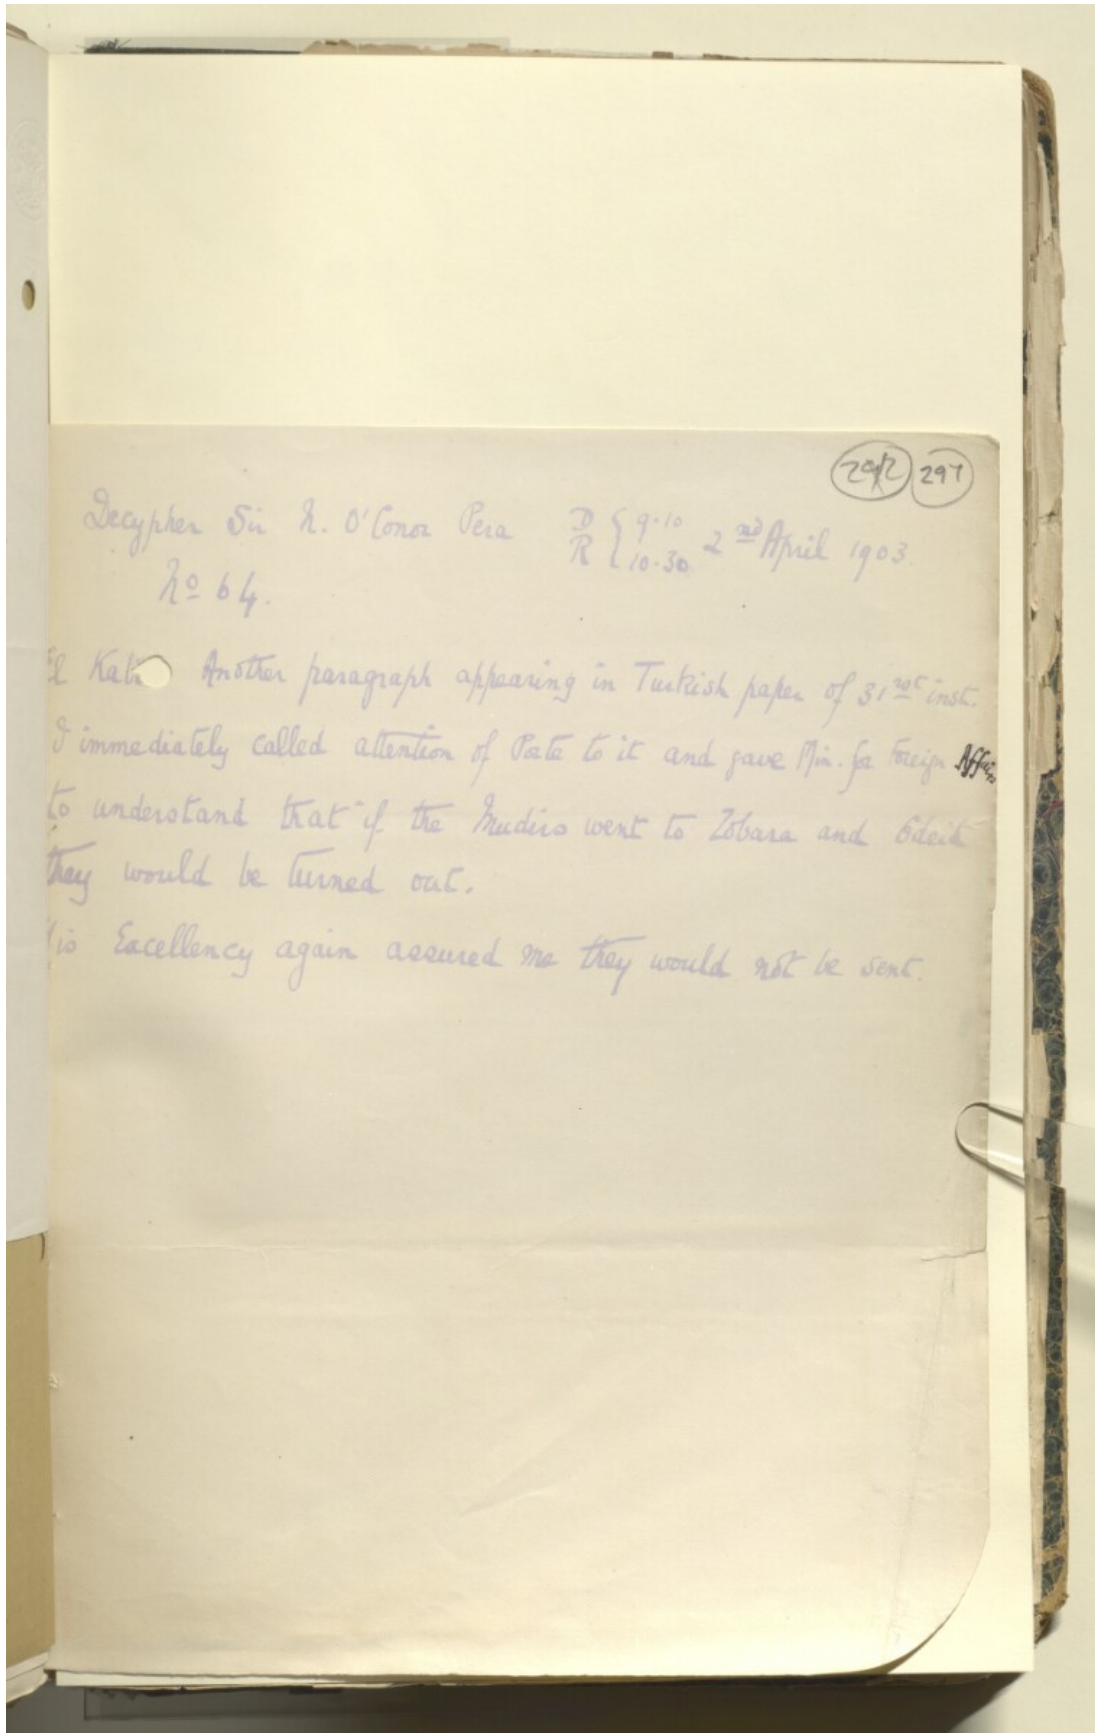 292 297
Decypher Sir N. O'Conor Pera D R { 9.10 10.30 2nd April 1903.
No 64.
El Kat Another paragraph appearing in Turkish paper of 31st inst.
I immediately called attention of Porte to it and gave Min. for Foreign Affairs
to understand that if the Mudirs went to Zobara and Odeid
they would be turned out.
is Excellency again assured me they would not be sent.